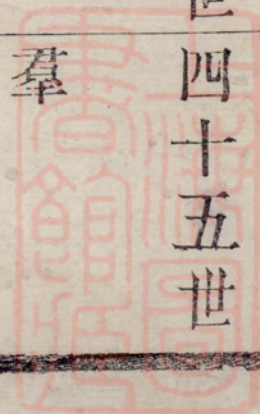 四十五世
羣